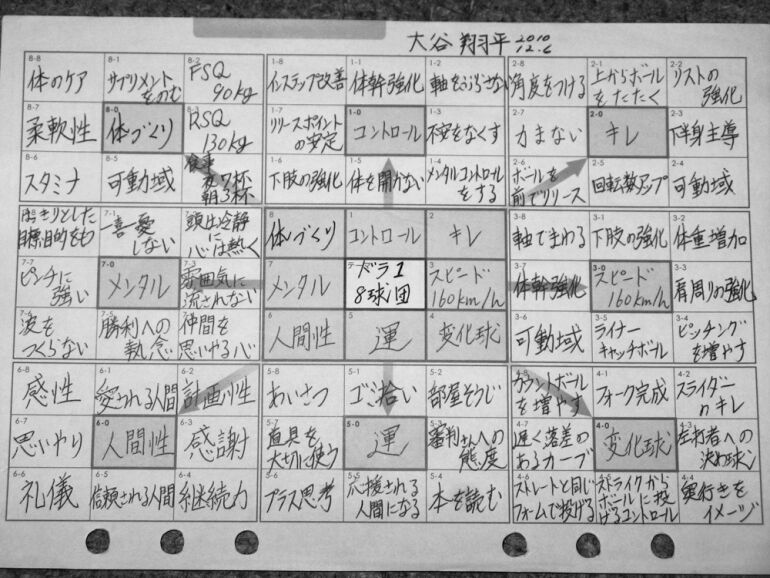 大谷 翔平 2010
12.6
8-8
体のケア
8-1
サプリメント
をのむ
8-2
FSQ
90kg
8-7
柔軟性
8-0
体づくり
8-3
RSQ
130kg
8-6
スタミナ
8-5
可動域
食事
夜7杯
朝3杯
1-8
インステップ改善
1-1
体幹強化
1-2
軸をぶらさない
1-7
リリースポイント
の安定
1-0
コントロール
1-3
不安をなくす
1-6
下肢の強化
1-5
体を開かない
1-4
メンタルコントロール
をする
2-8
角度をつける
2-1
上からボール
をたたく
2-2
リストの
強化
2-7
力まない
2-0
キレ
2-3
下半身主導
2-6
ボールを
前でリリース
2-5
回転数アップ
2-4
可動域
はっきりとした
目標、目的をもつ
7-1
一喜一憂
しない
頭は冷静に
心は熱く
7-7
ピンチに
強い
7-0
メンタル
7-3
雰囲気に
流されない
波を
つくらない
7-5
勝利への
執念
仲間を
思いやる心
8
体づくり
1
コントロール
2
キレ
7
メンタル
ドラ1
8球団
3
スピード
160km/h
6
人間性
5
運
4
変化球
3-8
軸でまわる
3-1
下肢の強化
3-2
体重増加
3-7
体幹強化
3-0
スピード
160km/h
3-3
肩周りの強化
3-6
可動域
3-5
ライナー
キャッチボール
3-4
ピッチング
を増やす
6-8
感性
6-1
愛される人間
6-2
計画性
6-7
思いやり
6-0
人間性
6-3
感謝
6-6
礼儀
6-5
信頼される人間
6-4
継続力
5-8
あいさつ
5-1
ゴミ拾い
5-2
部屋そうじ
5-7
道具を
大切に使う
5-0
運
5-3
審判さんへの
態度
5-6
プラス思考
5-5
応援される
人間になる
5-4
本を読む
4-8
カウントボール
を増やす
4-1
フォーク完成
4-2
スライダー
のキレ
4-7
遅く落差の
あるカーブ
4-0
変化球
4-3
左打者への
決め球
4-6
ストレートと同じ
フォームで投げる
ストライクから
ボールに投
げるコントロール
4-4
奥行きを
イメージ